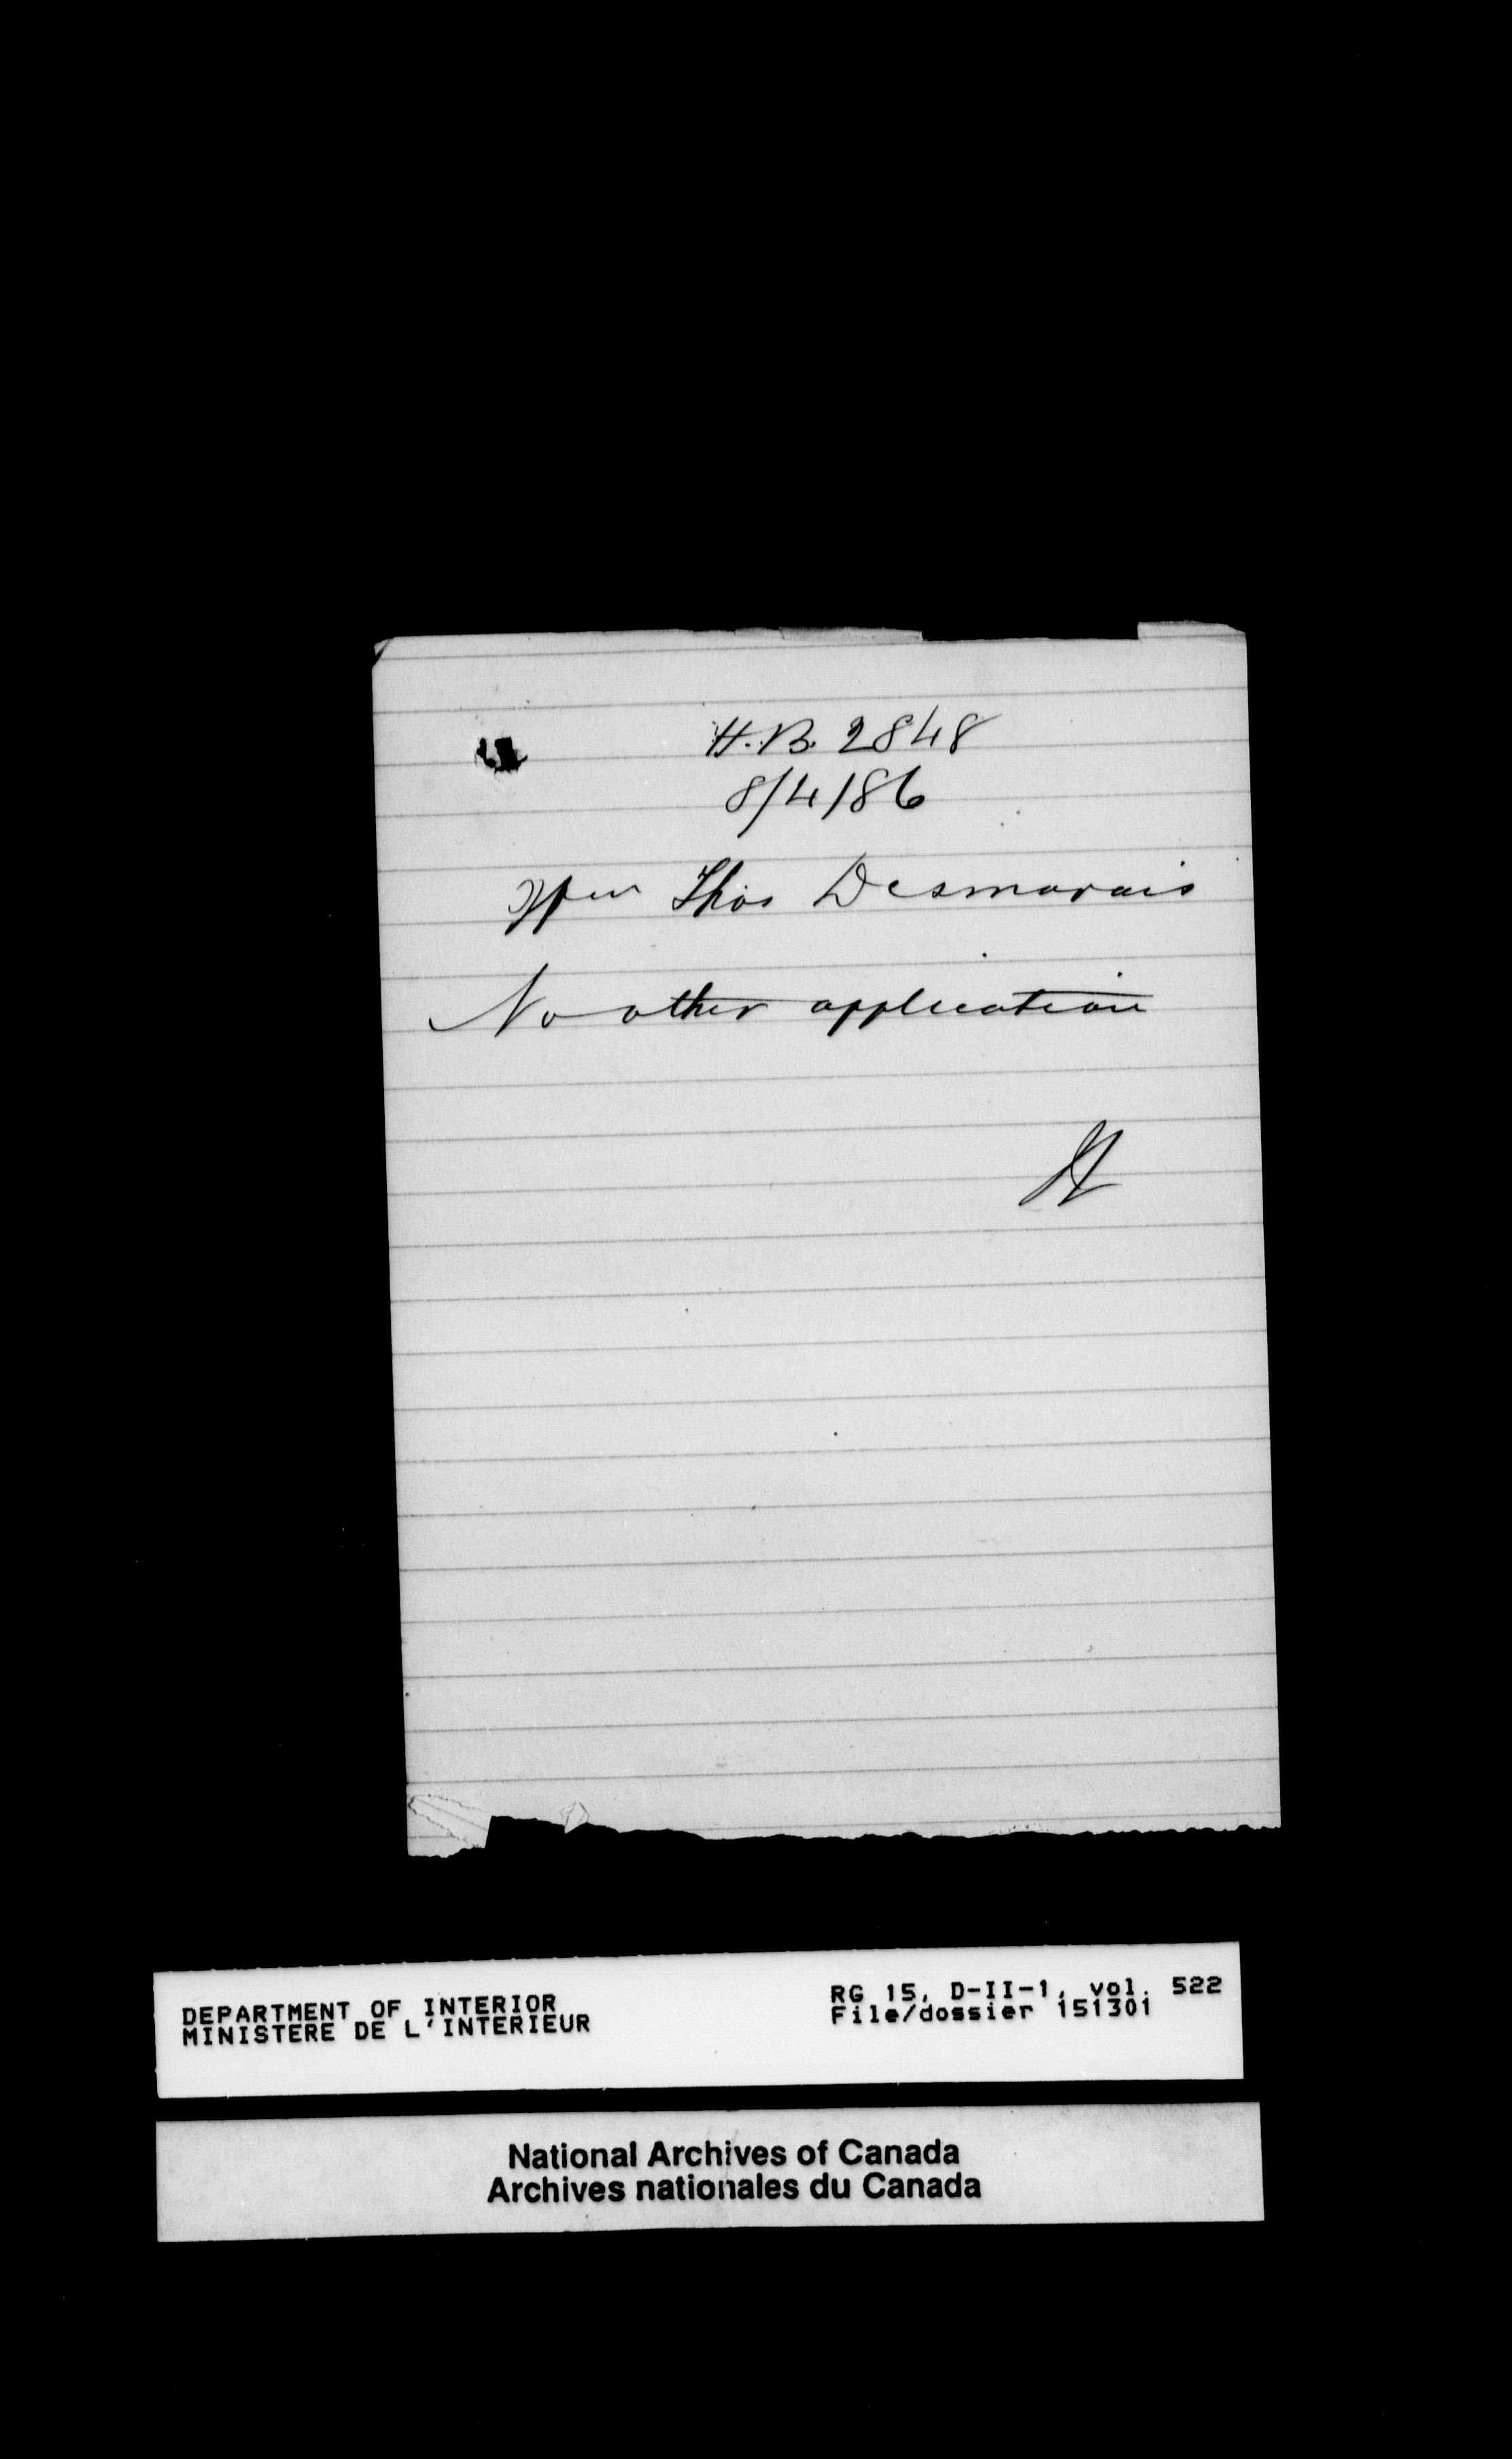 H.B. 2848
8/4/86
Thos Desmarais
No other application
DEPARTMENT OF INTERIOR
MINISTERE DE L'INTERIEUR
RG 15, D-II-1, vol. 522
File/dossier 151301
National Archives of Canada
Archives nationales du Canada